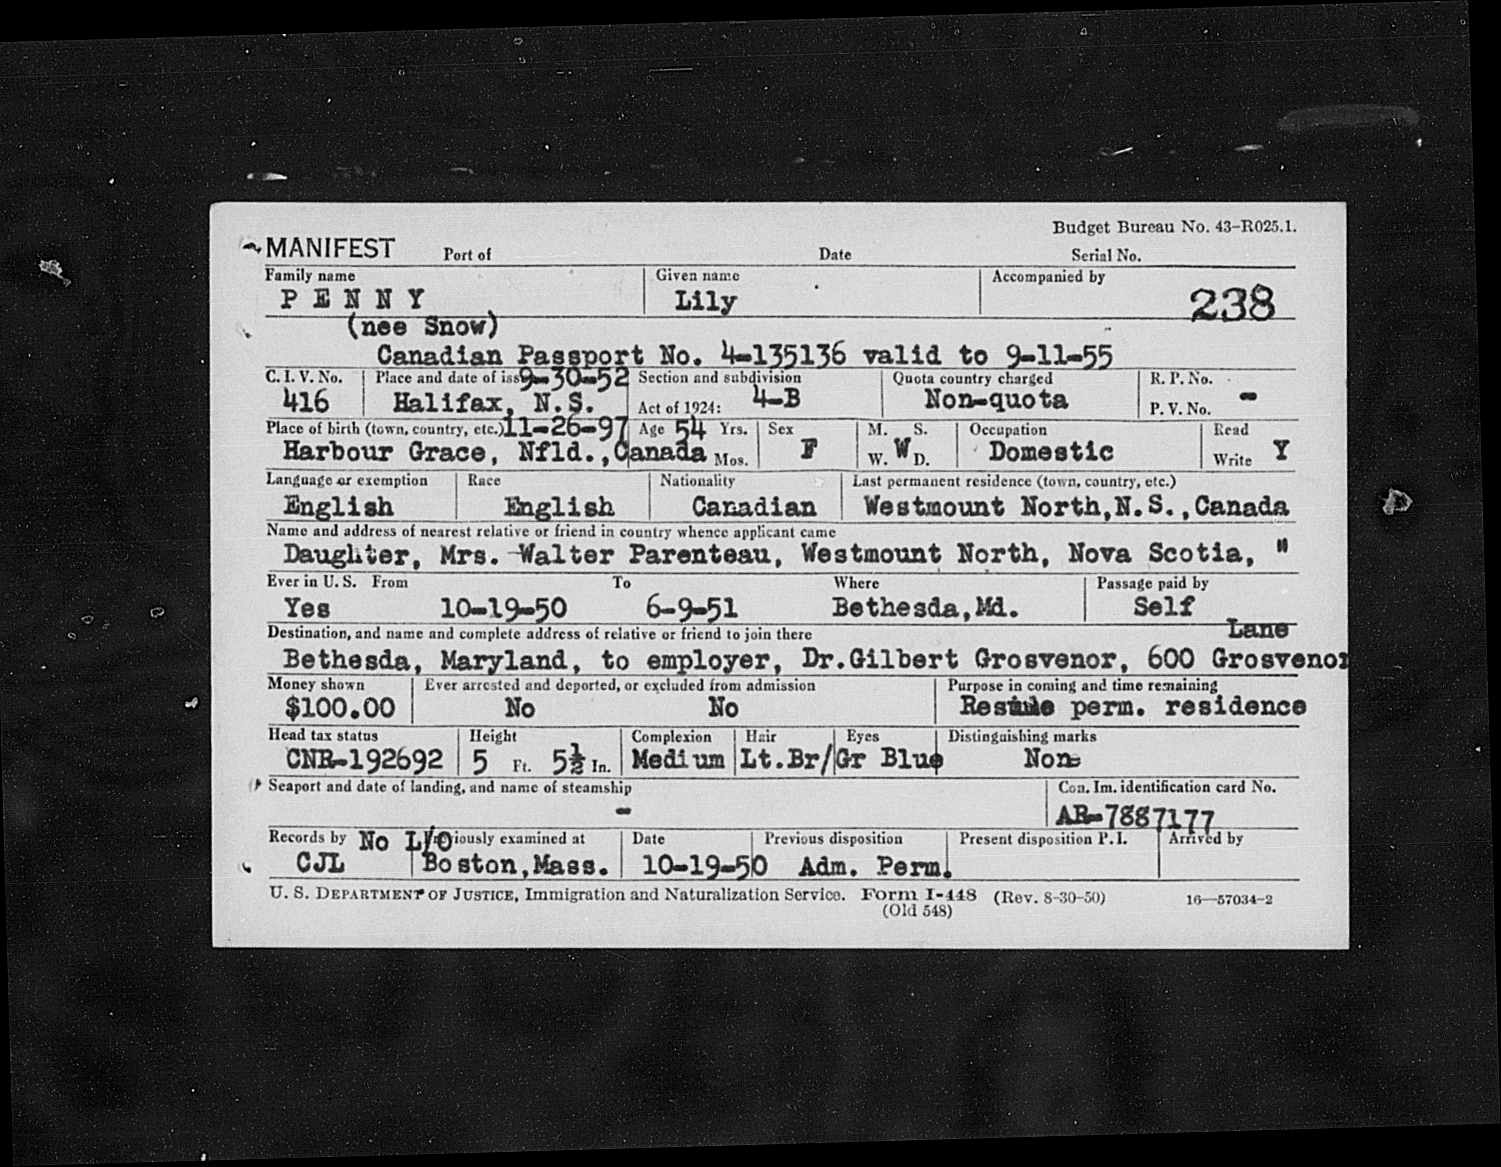 Budget Bureau No. 43-R025.1.
MANIFEST Port of Date Serial No.
Family name Given name Accompanied by
P E N N Y Lily 238
(nee Snow)
Canadian Passport No. 4-135136 valid to 9-11-55
C. I. V. No. Place and date of iss 9-30-52 Section and subdivision Quota country charged R. P. No.
416 Halifax, N.S. Act of 1924: 4-B Non-quota P. V. No. -
Place of birth (town, country, etc.) 11-26-97 Age 54 Yrs. Sex M. S. Occupation Read
Harbour Grace, Nfld.,Canada Mos. F W. W D. Domestic Write Y
Language or exemption Race Nationality Last permanent residence (town, country, etc.)
English English Canadian Westmount North,N.S.,Canada
Name and address of nearest relative or friend in country whence applicant came
Daughter, Mrs. Walter Parenteau, Westmount North, Nova Scotia, "
Ever in U. S. From To Where Passage paid by
Yes 10-19-50 6-9-51 Bethesda,Md. Self
Destination, and name and complete address of relative or friend to join there Lane
Bethesda, Maryland, to employer, Dr.Gilbert Grosvenor, 600 Grosvenor
Money shown Ever arrested and deported, or excluded from admission Purpose in coming and time remaining
$100.00 No No Resume perm. residence
Head tax status Height Complexion Hair Eyes Distinguishing marks
CNR-192692 5 Ft. 5½ In. Medium Lt.Br/Gr Blue None
Seaport and date of landing, and name of steamship Con. Im. identification card No.
- AR-7887177
Records by No L/O iously examined at Date Previous disposition Present disposition P. I. Arrived by
CJL Boston,Mass. 10-19-50 Adm. Perm.
U. S. DEPARTMENT OF JUSTICE, Immigration and Naturalization Service. Form I-448 (Rev. 8-30-50) 16—57034-2
(Old 548)